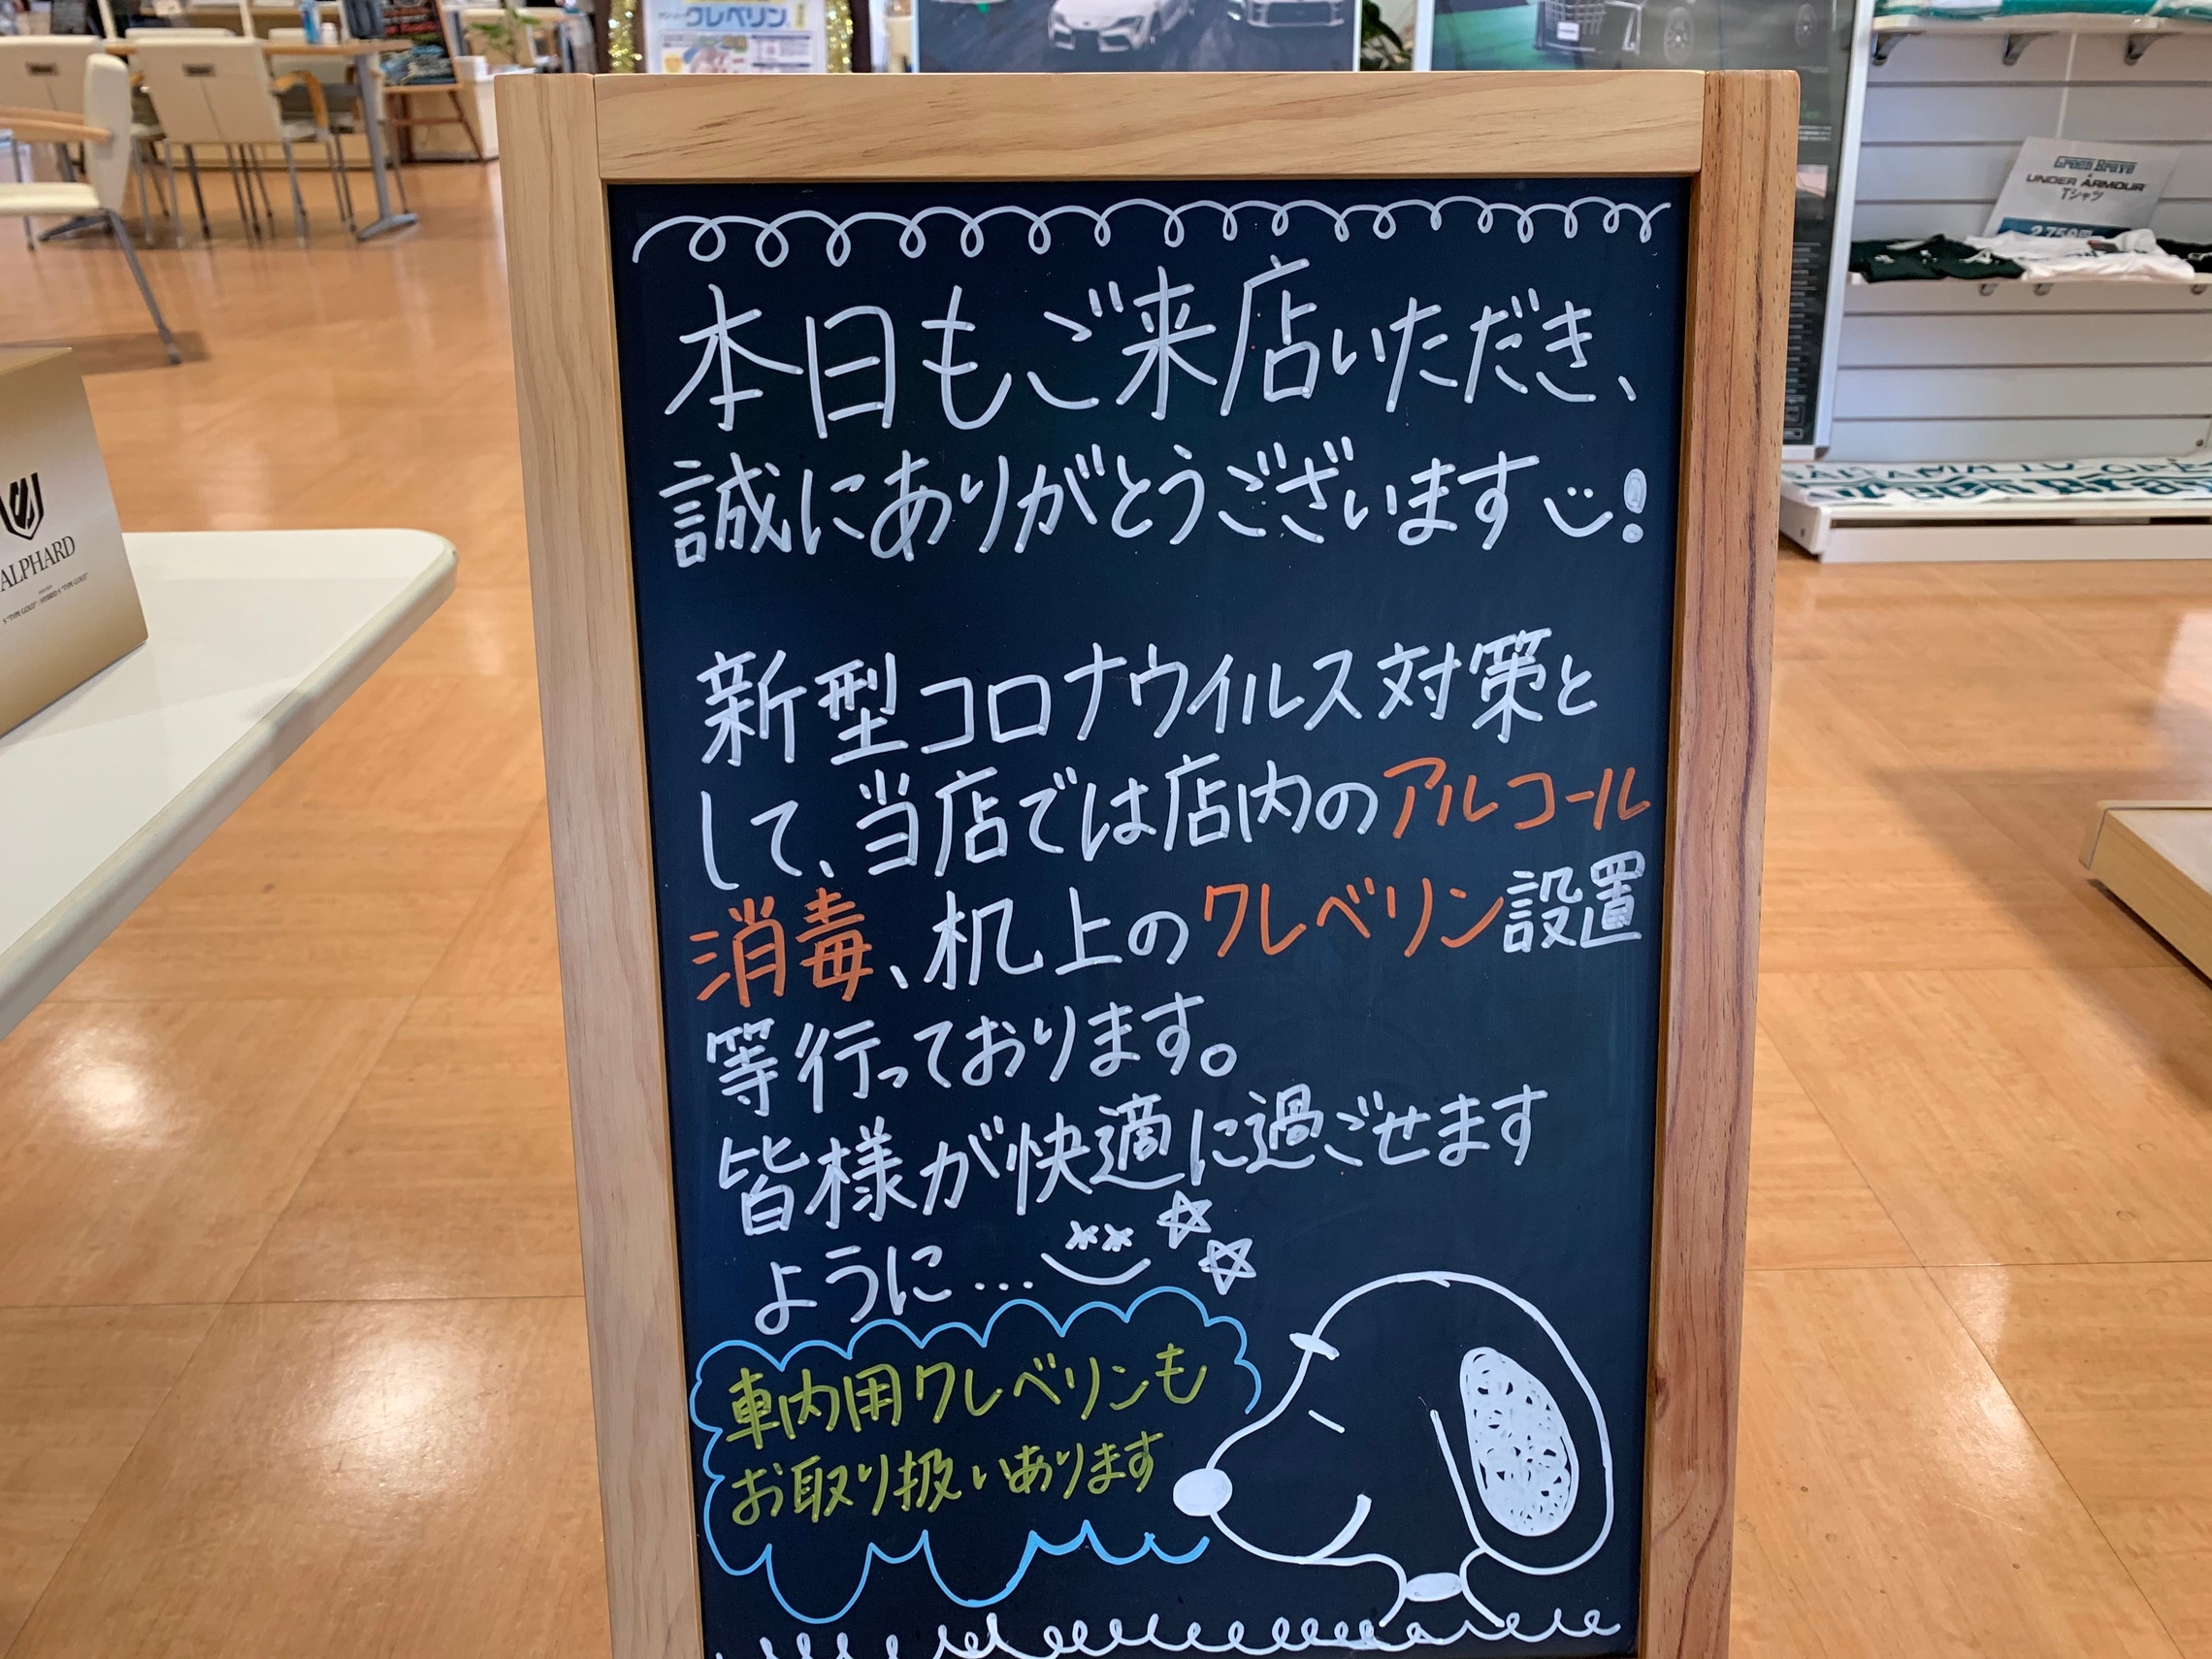 クレベリン
本日もご来店いただき、
誠にありがとうございます!
新型コロナウイルス対策と
して、当店では店内のアルコール
消毒、机上のクレベリン設置
等行っております。
皆様が快適に過ごせます
ように…
車内用クレベリンも
お取り扱いあります
ALPHARD
Green Brave
UNDER ARMOUR
Tシャツ